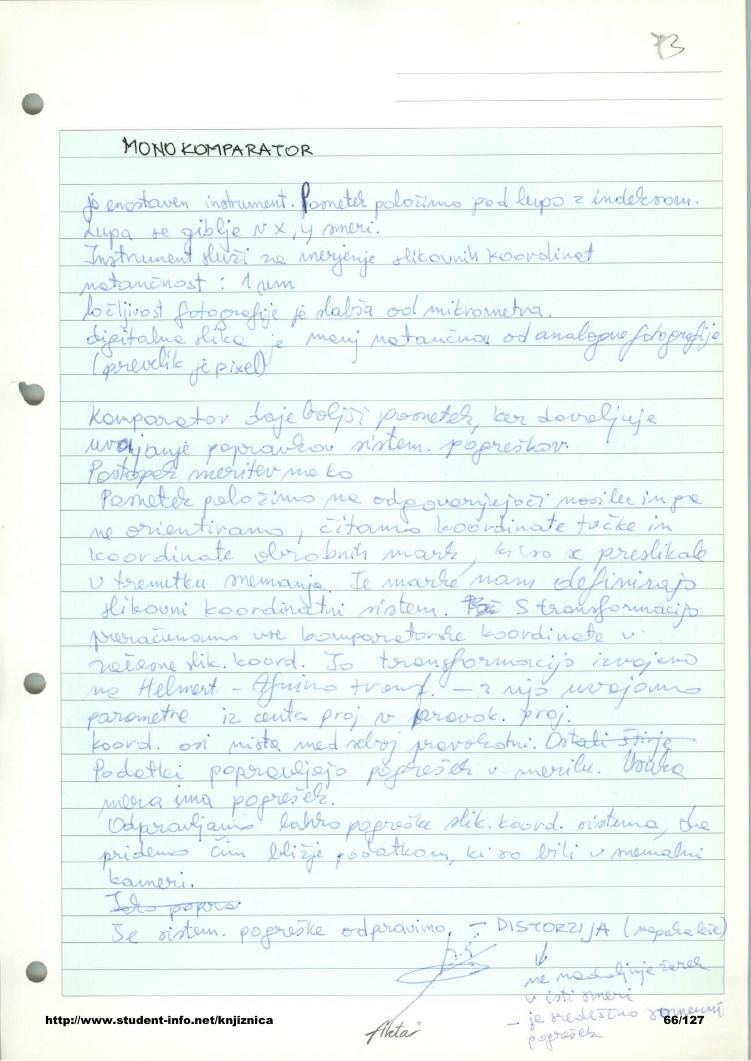 73
MONOKOMPARATOR
je enostaven instrument. Posnetek položimo pod lupo z indeksom.
Lupa se giblje v x, y smeri.
Instrument služi za merjenje slikovnih koordinat
natančnost : 1 um
ločljivost fotografije je slabša od mikrometra.
digitalna slika je manj natančna od analogne fotografije
(prevelik je pixel)
Komparator daje boljši posnetek, ker dovoljuje
uvajanje popravkov sistem. pogreškov.
Postopek meritev
Posnetek položimo na odgovarjajoči nosilec in ga
ne orientiramo, čitamo koordinate točke in
koordinate obrobnih mark, ki so se preslikale
v trenutku snemanja. Te marke nam definirajo
slikovni koordinatni sistem. S transformacijo
preračunamo vse komparatorske koordinate v
začasne slik. koord. To transformacijo izvajamo
na Helmert - Afino transf. - z njo uvajamo
parametre iz centr. proj v pravok. proj.
koord. osi nista med seboj pravokotni. Ostali štirje
Podatki popravljajo pogrešek v merilu. Vsaka
mera ima pogrešek.
Odpravljamo lahko pogreške slik. koord. sistema, da
pridemo čim bližje podatkom, ki so bili v snemalni
kameri.
Tako popra
Še sistem. pogreške odpravimo - DISTORZIJA (napaka leče)
ne nadaljuje žarek
v isti smeri
- je središčno
pogrešek
http://www.student-info.net/knjiznica
Akta
66/127